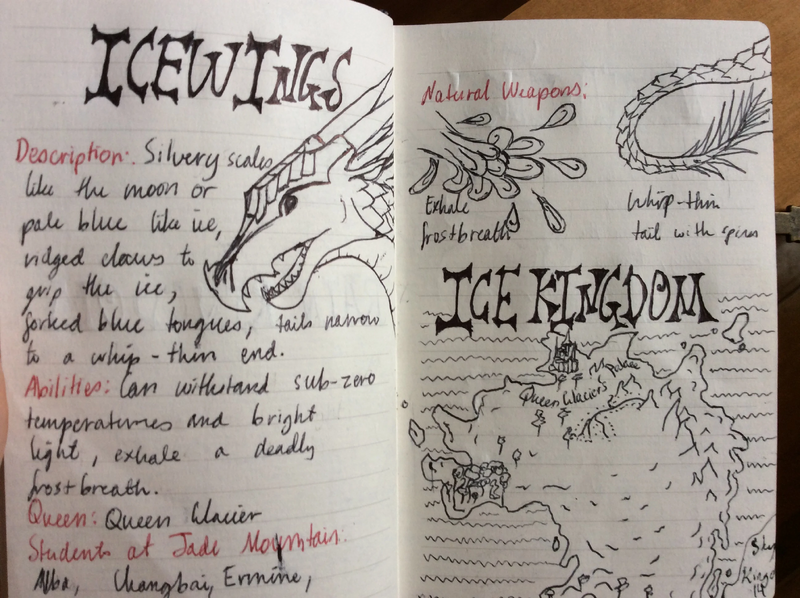 ICEWINGS
Description: Silvery scales
like the moon or
pale blue like ice,
ridged claws to
grip the ice,
forked blue tongues, tails narrow
to a whip-thin end.
Abilities: Can withstand sub-zero
temperatures and bright
light, exhale a deadly
frostbreath.
Queen: Queen Glacier
Students at Jade Mountain:
Alba, Changbai, Ermine,
Natural Weapons:
Exhale
frostbreath
Whip-thin
tail with spines
ICE KINGDOM
Queen Glacier's Palace
Sky
Kingd